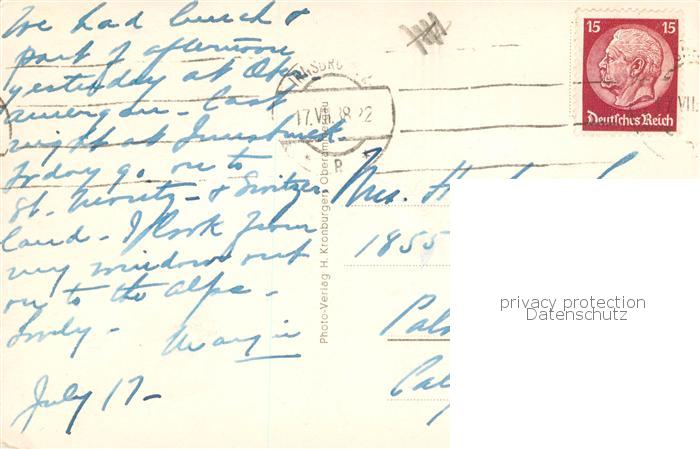 We had lunch &
part of afternoon
yesterday at Ober
amergau - last
night at Innsbruck.
Today go on to
St. Moritz - & Switzer
land - I look from
my window out
on to the Alps -
Lovely -
Margie
July 17-
INNSBRUCK
17.VII.38.22
15 15
Deutsches Reich
VII.
Photo-Verlag H. Kronburger, Oberammergau
Mrs.
1855
privacy protection
Datenschutz